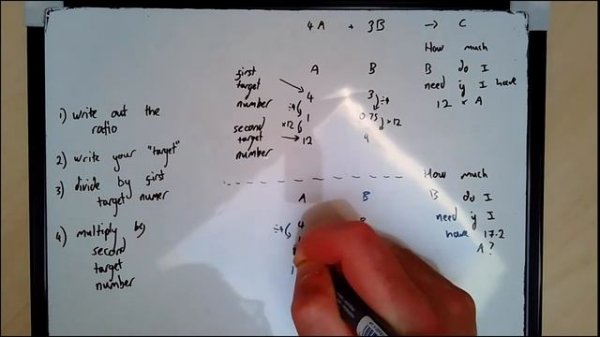 4A + 3B → C
How much
B do I
need if I have
12 x A
first
target
number
second
target
number
A B
4 3
÷4 ÷4
1 0.75
x12 x12
12 9
1) write out the
ratio
2) write your "target"
3) divide by first
target numer
4) multiply by
second
target
number
A B
÷4 4
How much
B do I
need if I
have 17.2
A?